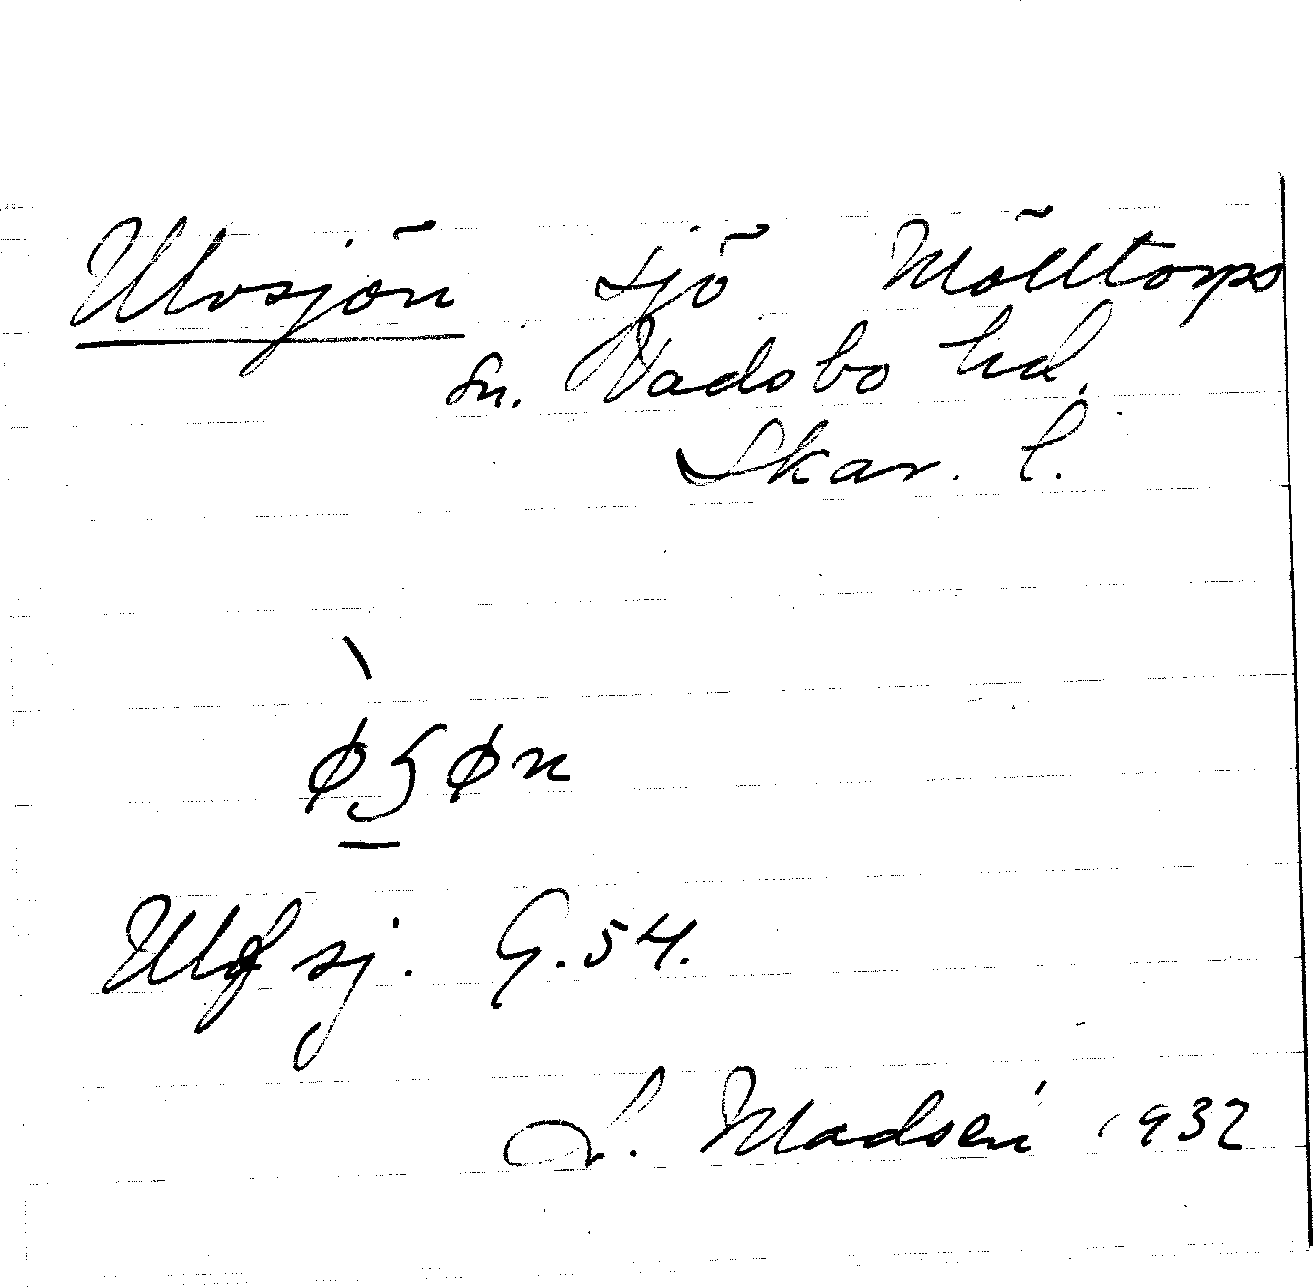 Ulvsjön sjö Mölltorps
sn. Vadsbo hd.
Skar. l.
Ulfsj. G.54.
L. Madsén 1932